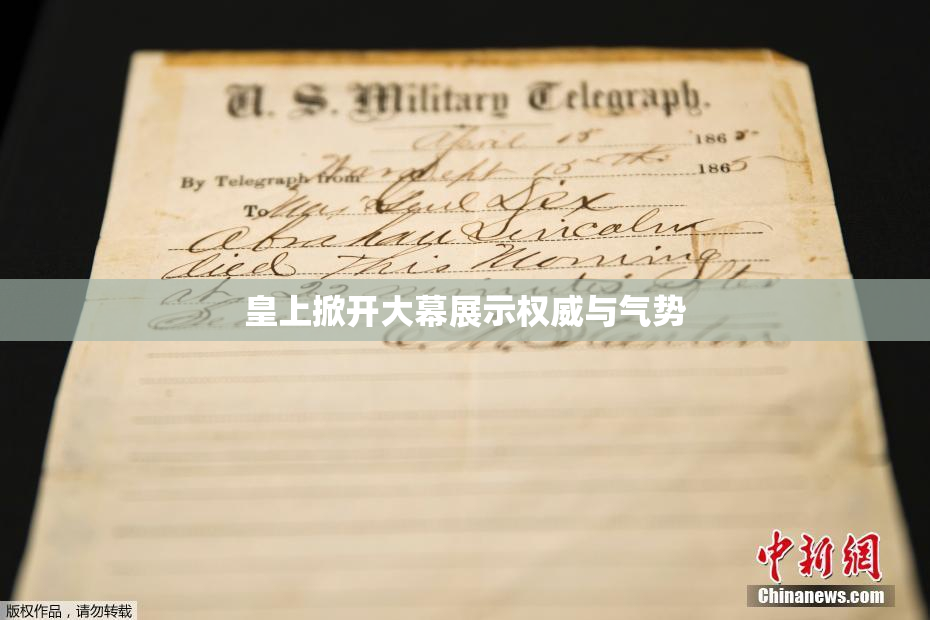 U. S. Military Telegraph.
April 15 1865
By Telegraph from War Dept 15th 1865
To Maj Genl Dix
Abraham Lincoln
died this Morning
at 22 minutes after
皇上掀开大幕展示权威与气势
E. M. Stanton
中新网
Chinanews.com
版权作品，请勿转载